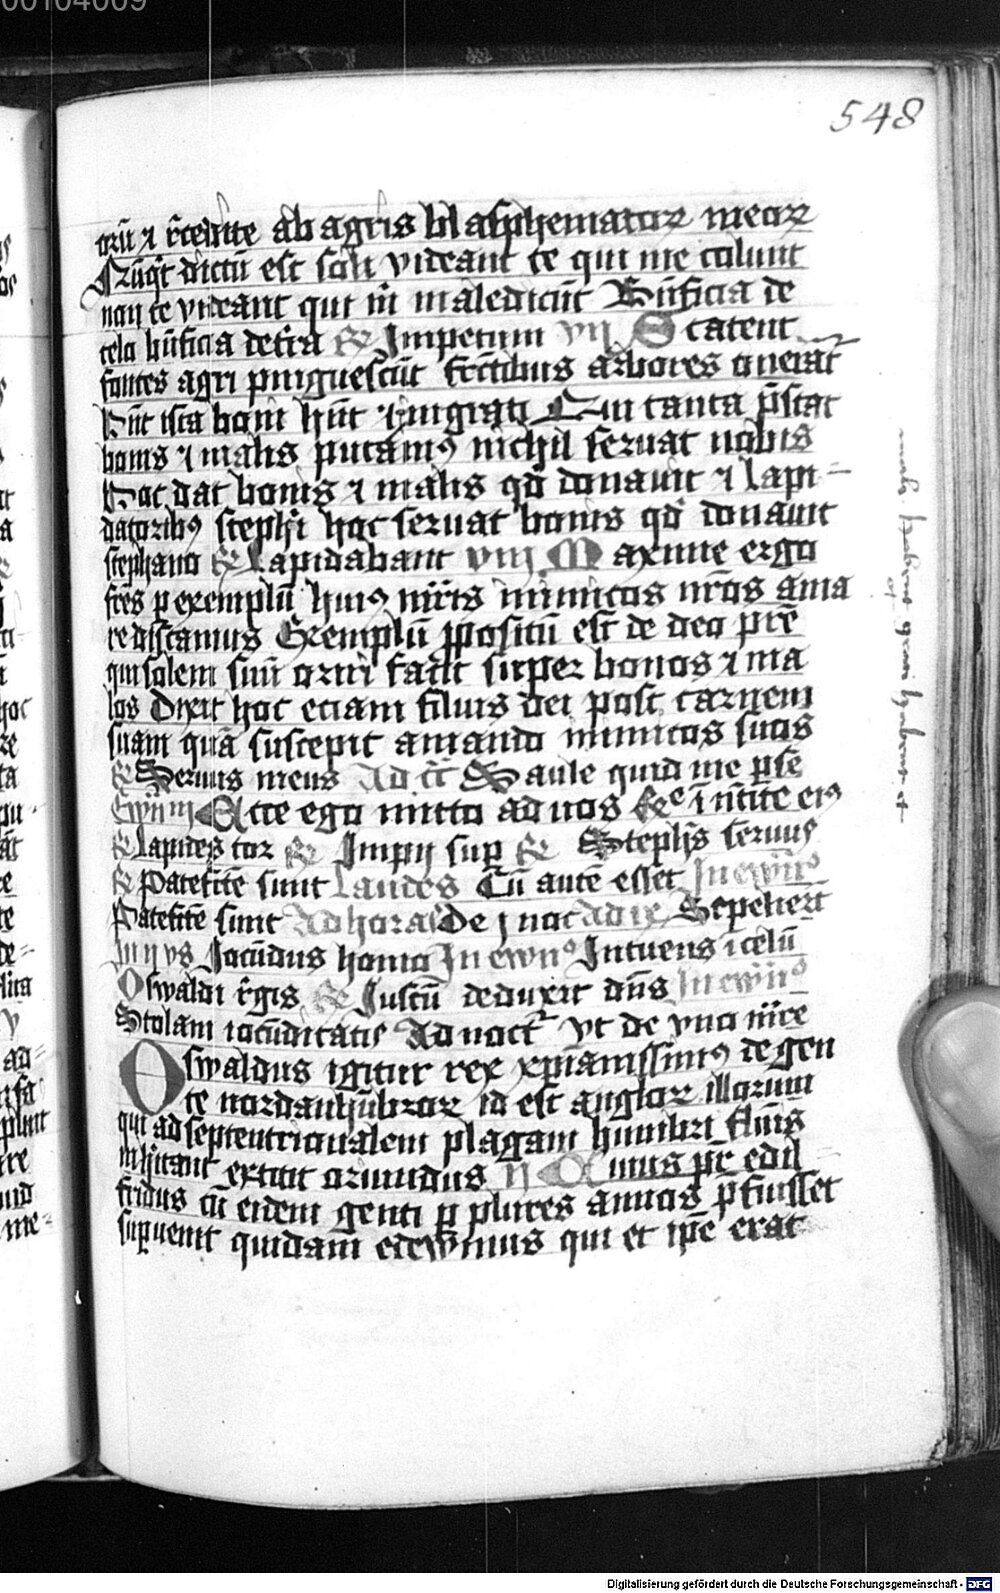 00104009
548
orū ⁊ recedite ab agris blasphematorꝝ meorꝝ
Nūq̇t dictū est soli videant te qui me colunt
non te videant qui m̄ maledicūt Bn̄ficia de
celo bn̄ficia de terra R̄ Impetum vij Scatent
fontes agri pinguescūt fructibus arbores onerāt
Hūt ista boni hn̄t ⁊ ingrati Qui tanta p̄stat
bonis ⁊ malis putam⁹ nichil seruat nobis
Hoc dat bonis ⁊ malis qd̄ donauit ⁊ lapi-
datorib⁹ steph̄i hoc seruat bonis qd̄ donauit
stephano R̄ Lapidabant viij Maxime ergo
fr̄es p exemplū hui⁹ mr̄is inimicos nr̄os ama
re discamus Exemplū ꝓpositū est de deo pr̄e
qui solem suū oriri facit super bonos ⁊ ma
los Dixit hoc etiam filius dei post carnem
suam quā suscepit amando inimicos suos
R̄ Seruus meus Ad ct̄ Saule quid me p̄se
Ewn̄ iij Ecce ego mitto ad uos R̄e ī mīte ei⁹
R̄ Lapides tor R̄ Impij sup R̄ Steph̄s seruus
R̄ Patefc̄te sunt Laudes Cū autē esset In ewn̄o
Patefc̄te sunt Ad horas De j noc ad ix Sepelierūt
In ij vs Jocūdus homo In ewn̄o Intuens ī celū
Oswaldi r̄gis R̄ Justū deduxit dn̄s In ewn̄o
Stolam iocūditatis Ad noct̄ vt de vno mr̄e
Oswaldus igitur rex xp̄ianissim⁹ de gen
te nordanhūbrorꝝ id est anglorꝝ illorum
qui ad septentrionalem plagam humbri flūis
inhītant extitit oriundus ij Cuius pr̄ edil
fridus cū eidem genti p plures annos p̄fuisset
supuenit quidam edewinus qui et ip̄e erat
Digitalisierung gefördert durch die Deutsche Forschungsgemeinschaft - DFG